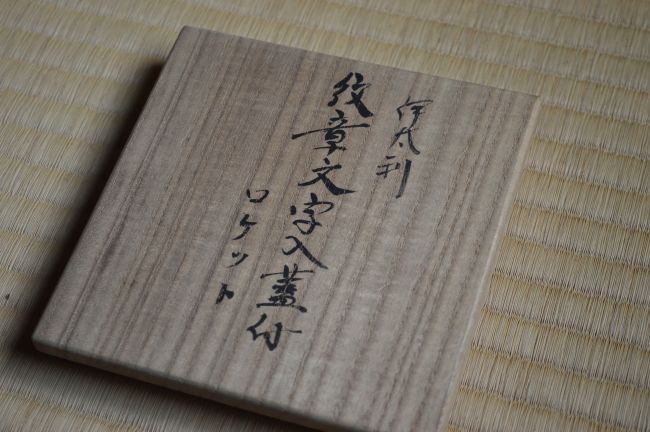 伊太利
紋章文字入蓋付
ロケット